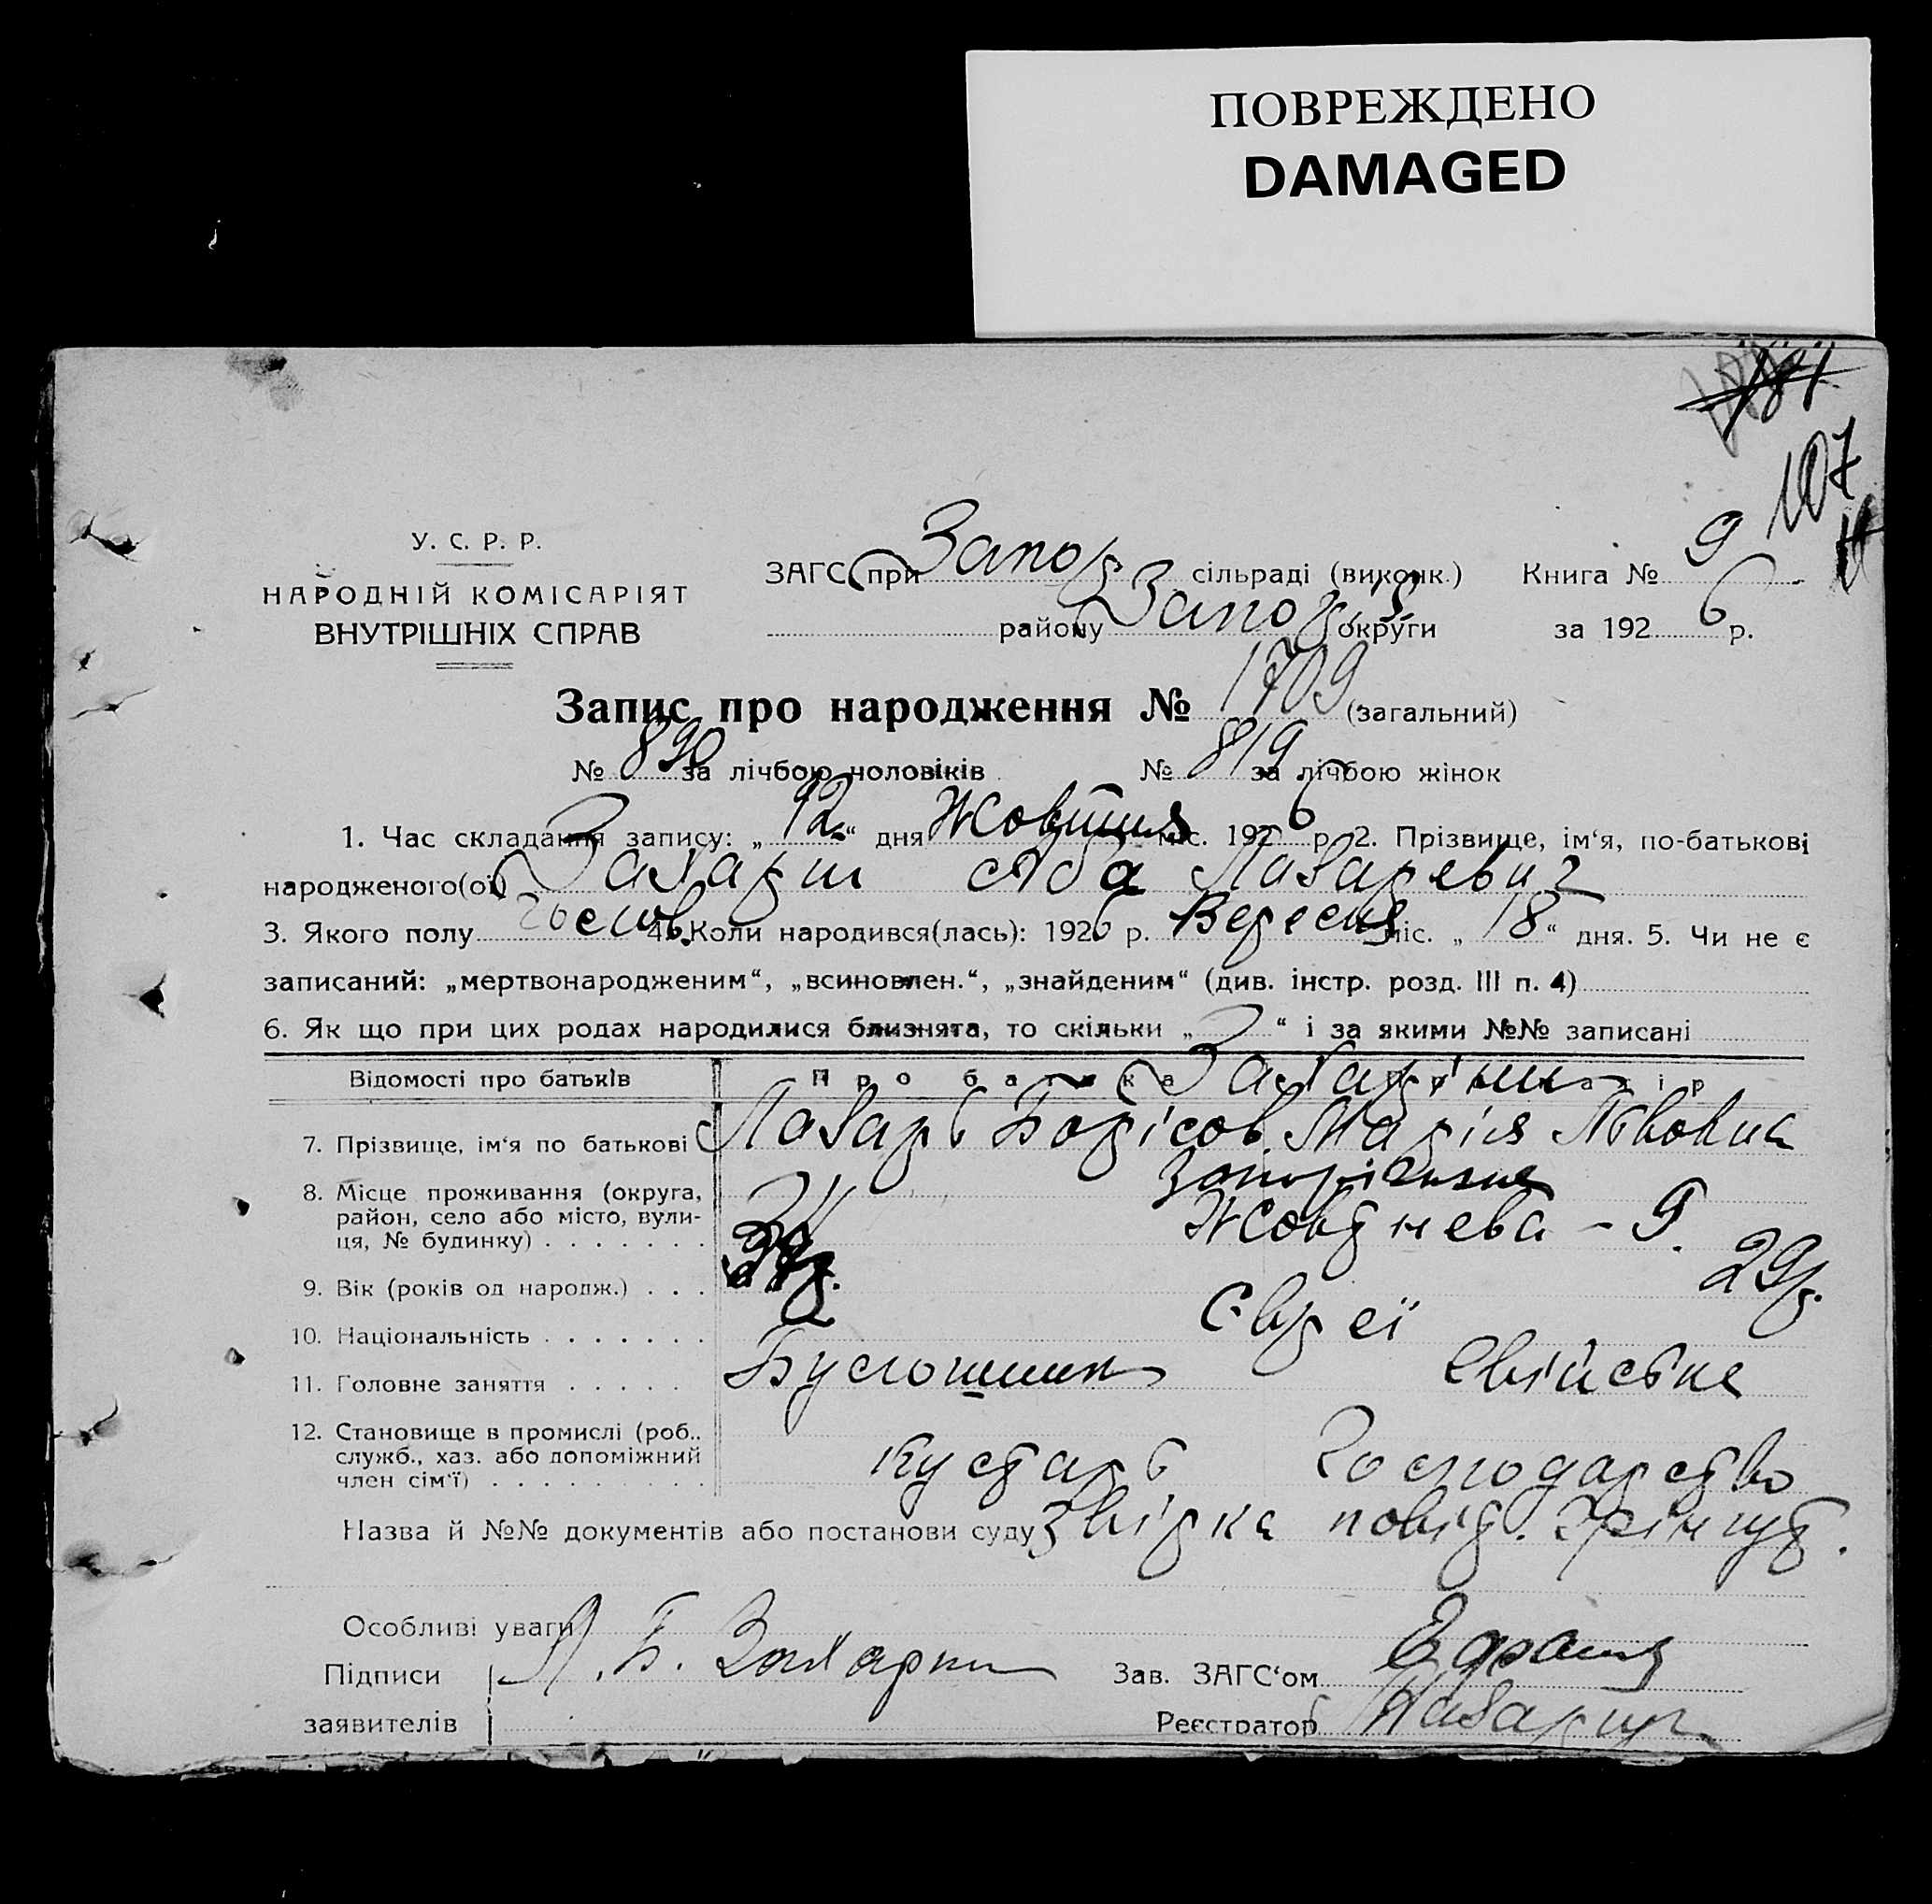 ПОВРЕЖДЕНО
DAMAGED
107
У. С. Р. Р.
НАРОДНІЙ КОМІСАРІЯТ
ВНУТРІШНІХ СПРАВ
ЗАГС при Запор сільраді (виконк.) Книга № 9
району Запор округи за 1926 р.
Запис про народження № 1709 (загальний)
№ 890 за лічбою чоловіків № 819 за лічбою жінок
1. Час складання запису: „12“ дня Жовтня міс. 1926 р. 2. Прізвище, ім‘я, по-батькові
народженого(ої) Захарин Аба Лазаревич
3. Якого полу 4. Коли народився(лась): 1926 р. Вересня міс. „18“ дня. 5. Чи не є
записаний: „мертвонародженим“, „всиновлен.“, „знайденим“ (див. інстр. розд. III п. 4)
6. Як що при цих родах народилися близнята, то скільки „ “ і за якими №№ записані
Відомості про батьків Про батька Захарини
7. Прізвище, ім‘я по батькові Лазарь Борісов. Марія Львовна
8. Місце проживання (округа, Запоріжжя
район, село або місто, вули- Жовтнева - 9.
ця, № будинку)
9. Вік (років од народж.) 29р.
10. Національність Євреї
11. Головне заняття Свійське
12. Становище в промислі (роб.. Кустарь Господарство
служб., хаз. або допоміжний
член сім‘ї)
Назва й №№ документів або постанови суду Звірка повід.
Особливі уваги
Підписи Л. Б. Захарин Зав. ЗАГС‘ом
заявителів Реєстратор